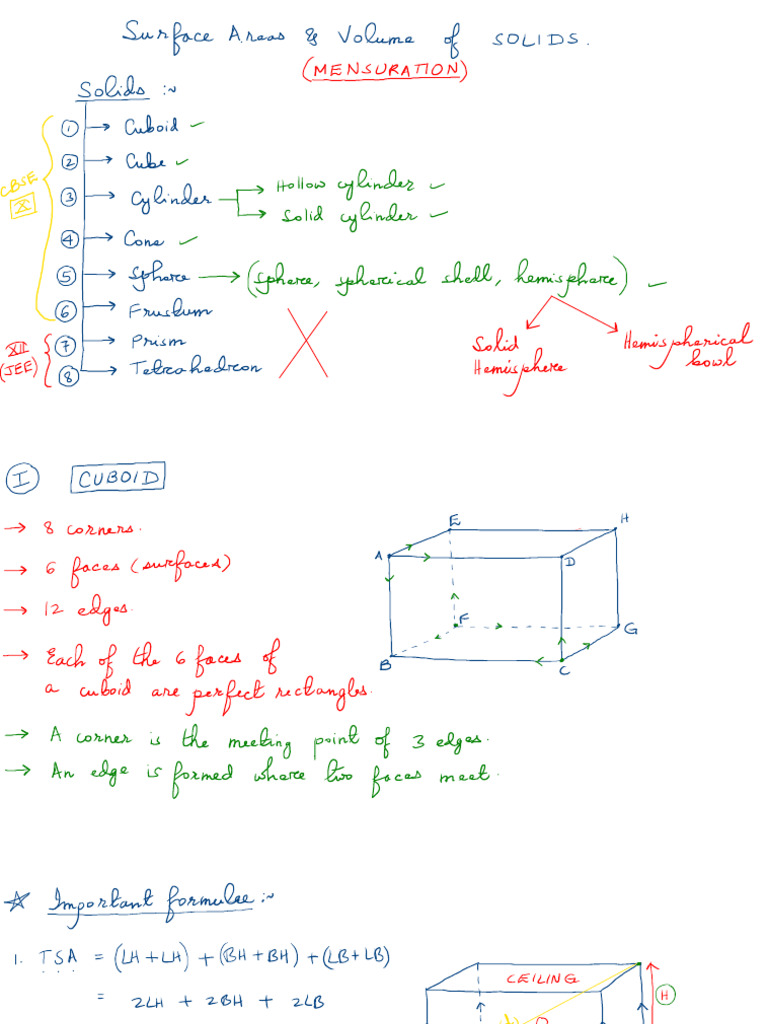 Surface Areas & Volume of SOLIDS.
(MENSURATION)
Solids :~
CBSE X
① → Cuboid ✓
② → Cube ✓
③ → Cylinder → Hollow cylinder ✓
→ Solid cylinder ✓
④ → Cone ✓
⑤ → Sphere → (Sphere, spherical shell, hemisphere) ✓
⑥ → Frustum
Solid Hemisphere
Hemispherical bowl
XII (JEE)
⑦ → Prism
⑧ → Tetrahedron
I CUBOID
→ 8 corners.
→ 6 faces (surfaces)
→ 12 edges.
→ Each of the 6 faces of
a cuboid are perfect rectangles.
→ A corner is the meeting point of 3 edges.
→ An edge is formed where two faces meet.
E H
A D
F G
B C
☆ Important formulae :~
1. TSA = (LH + LH) + (BH + BH) + (LB + LB)
= 2LH + 2BH + 2LB
CEILING
H